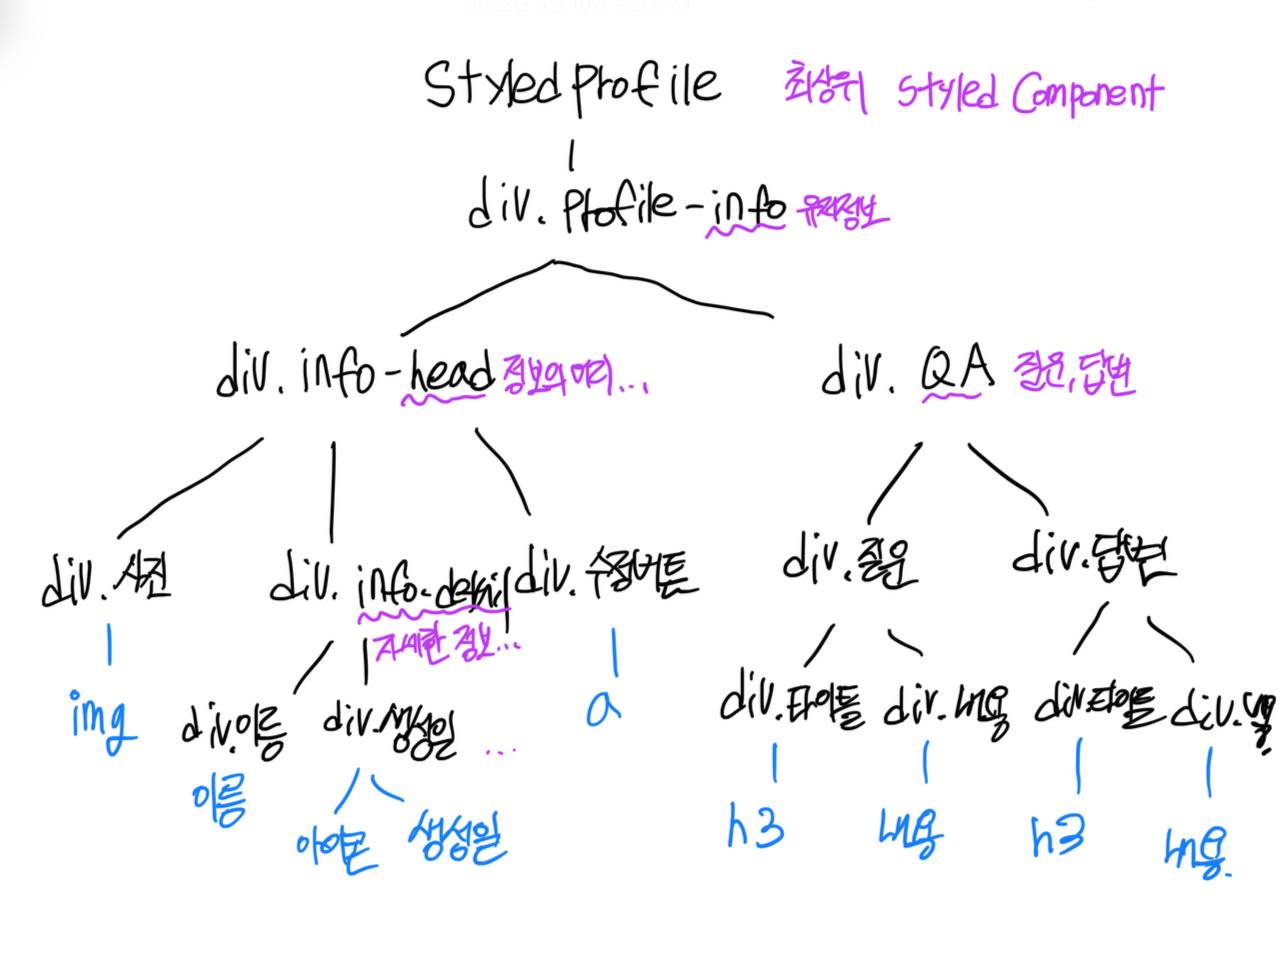 Styled Profile 최상위 Styled Component
div. Profile-info 유저정보
div. info-head 정보의 머리... div. QA 질문, 답변
div. 사진 div. info-detail div. 수정버튼 div. 질문 div. 답변
자세한 정보...
img div.이름 div.생성일 ... a div.타이틀 div.내용 div.타이틀 div.내용
이름 아이콘 생성일 h3 내용 h3 내용.